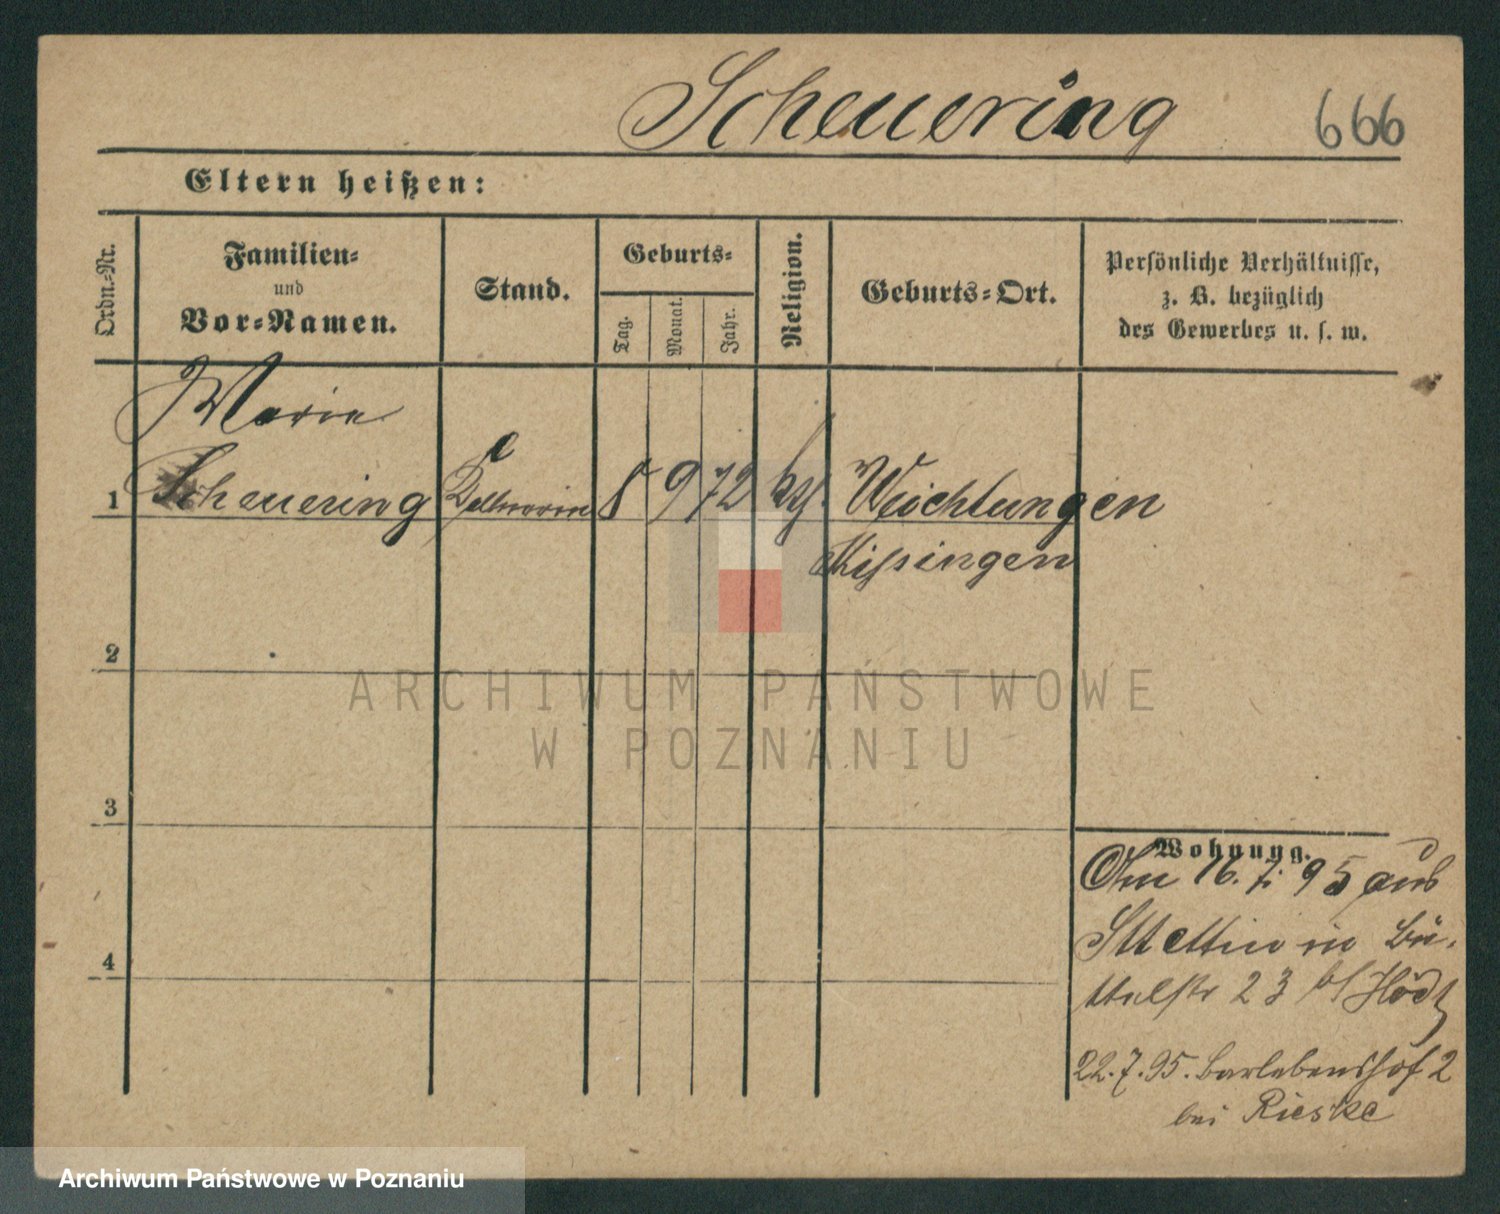 Scheuering 666
Eltern heißen:
Ordn.-Nr.
Familien-
und
Vor-Namen.
Stand.
Geburts-
Tag.
Monat.
Jahr.
Religion.
Geburts-Ort.
Persönliche Verhältnisse,
z. B. bezüglich
des Gewerbes u. s. w.
Marie
1 Scheuering Kellnerin 8 9 72 kth. Weichtungen
Kissingen
2
3
4
Wohnung.
Am 16. 7. 95 aus
Stettin in Bü-
ttelstr 23 b/
22. 7. 95. Barlebenshof 2
bei Rieske
ARCHIWUM PAŃSTWOWE
W POZNANIU
Archiwum Państwowe w Poznaniu